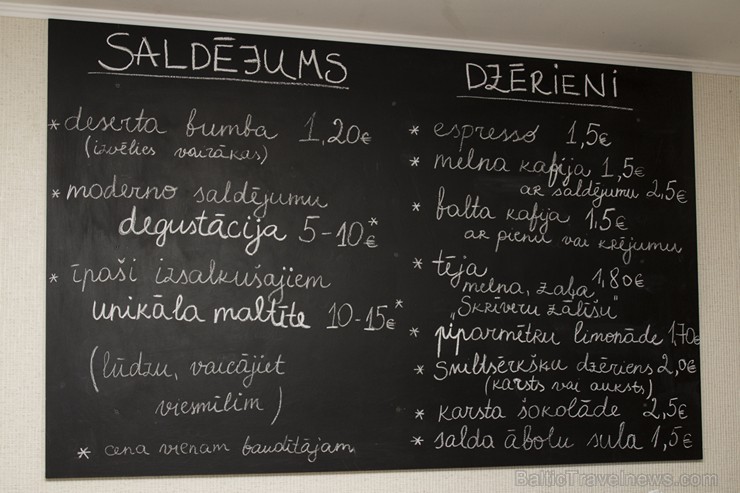 SALDĒJUMS
* deserta bumba 1,20€
(izvēlies vairākas)
* moderno saldējumu
degustācija 5-10€*
* īpaši izsalkušajiem
unikāla maltīte 10-15€*
(lūdzu, vaicājiet
viesmīlim)
* cena vienam baudītājam
DZĒRIENI
* espresso 1,5€
* melna kafija 1,5€
ar saldējumu 2,5€
* balta kafija 1,5€
ar pienu vai krējumu
* tēja 1,80€
melna, zaļa,
„Skrīveru zālīšu"
* piparmētru limonāde 1,70€
* Smiltsērkšķu dzēriens 2,0€
(karsts vai auksts)
* karsta šokolāde 2,5€
* salda ābolu sula 1,5€
© BalticTravelnews.com